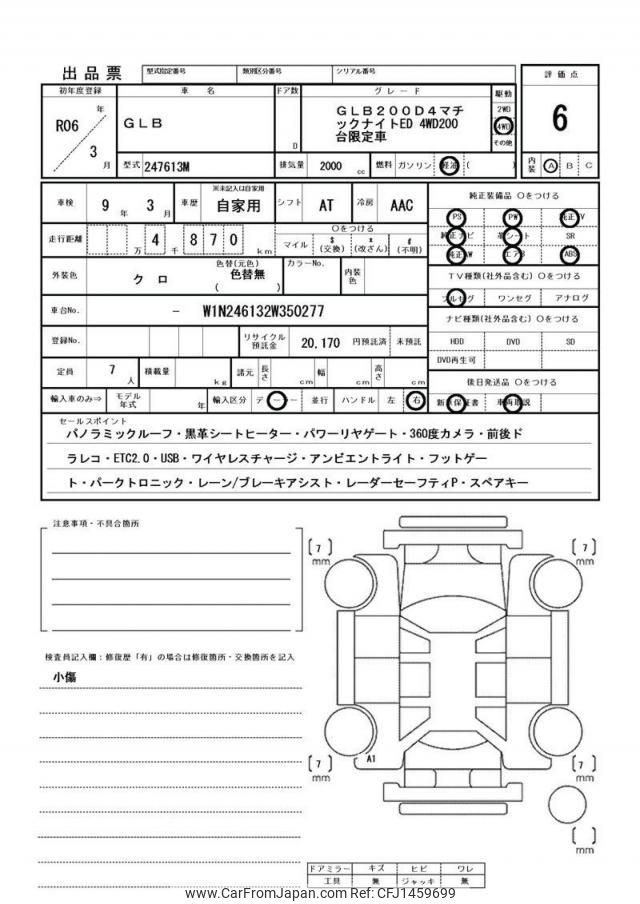 出品票
型式指定番号 類別区分番号 シリアル番号
評価点
初年度登録 車名 ドア数 グレード 駆動
R06 年 3 月
GLB
D
GLB200D4マチ
ックナイトED 4WD200
台限定車
2WD
4WD
その他
6
型式 247613M 排気量 2000 cc 燃料 ガソリン 軽油 ( )
内装 A B C
車検 9 年 3 月 車歴 ※未記入は自家用 自家用 シフト AT 冷房 AAC
純正装備品 ○をつける
走行距離 万 4 千 8 7 0 km
○をつける
マイル $ (交換) x (改ざん) # (不明)
PS PW 純正TV
純正ナビ 革シート SR
純正AW エアB ABS
外装色 クロ 色替(元色) 色替無 ( ) カラーNo. 内装色
TV種類(社外品含む) ○をつける
フルセグ ワンセグ アナログ
車台No. − W1N246132W350277
ナビ種類(社外品含む) ○をつける
登録No. リサイクル預託金 20,170 円預託済 未預託
HDD DVD SD
DVD再生可
定員 7 人 積載量 kg 諸元 長さ cm 幅 cm 高さ cm
後日発送品 ○をつける
輸入車のみ⇒ モデル年式 年 輸入区分 ディーラー 並行 ハンドル 左 右
新車保証書 車両取説
セールスポイント
パノラミックルーフ・黒革シートヒーター・パワーリヤゲート・360度カメラ・前後ド
ラレコ・ETC2.0・USB・ワイヤレスチャージ・アンビエントライト・フットゲー
ト・パークトロニック・レーン/ブレーキアシスト・レーダーセーフティP・スペアキー
注意事項・不具合箇所
[ 7 ] mm
[ 7 ] mm
検査員記入欄:修復歴「有」の場合は修復箇所・交換箇所を記入
小傷
A1
[ 7 ] mm
[ 7 ] mm
[ ] mm
ドアミラー キズ ヒビ ワレ
工具 無 ジャッキ 無
www.CarFromJapan.com CFJ1459699